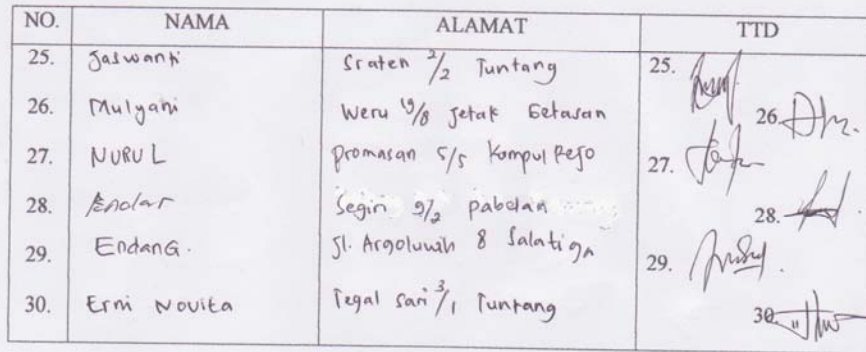 NO. NAMA ALAMAT TTD
25. Jaswanti Sraten 2/2 Tuntang 25.
26. Mulyani Weru 19/8 Jetak Getasan 26.
27. NURUL Promasan 5/5 Kumpul Rejo 27.
28. Endar Segiri 9/2 pabelan 28.
29. EndanG. Jl. Argoluwih 8 Salatiga 29.
30. Erni Novita Tegal Sari 3/1 Tuntang 30.